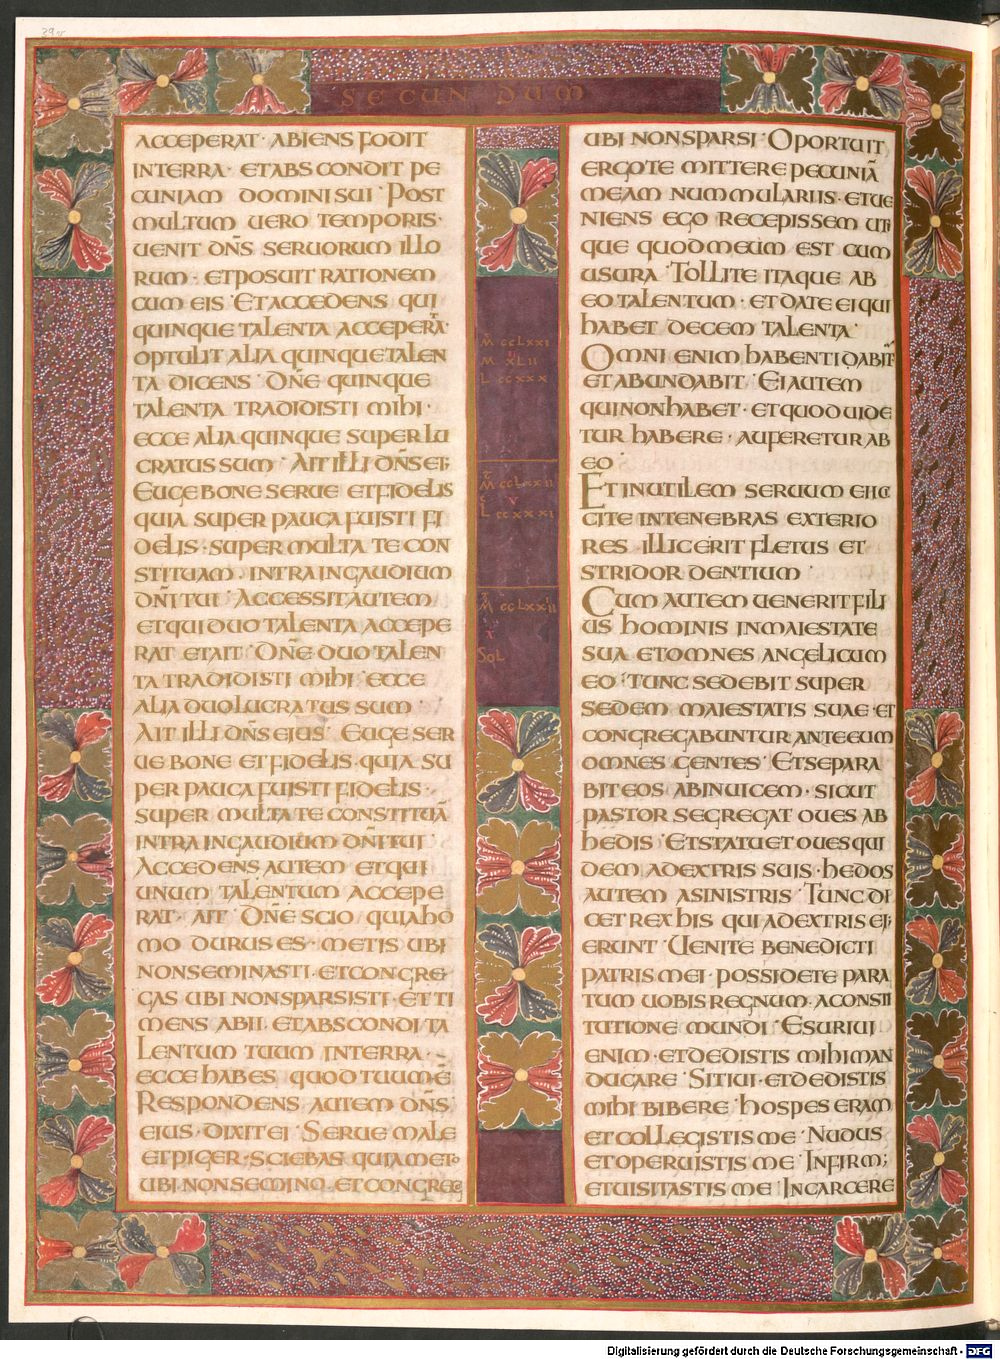 39v
SECUNDUM
ACCEPERAT · ABIENS FODIT
INTERRA · ETABSCONDIT PE
CUNIAM DOMINI SUI · POST
MULTUM UERO TEMPORIS ·
UENIT DN̄S SERUORUM ILLO
RUM · ETPOSUIT RATIONEM
CUM EIS · ETACCEDENS QUI
QUINQUE TALENTA ACCEPERĀ ·
OPTULIT ALIA QUINQUETALEN
TA DICENS · DN̄E QUINQUE
TALENTA TRADIDISTI MIHI ·
ECCE ALIA QUINQUE SUPERLU
CRATUS SUM · AIT ILLI DN̄S EI;
EUGE BONE SERUE ETFIDELIS
QUIA SUPER PAUCA FUISTI FI
DELIS · SUPER MULTA TE CON
STITUAM · INTRA INGAUDIUM
DN̄I TUI · ACCESSIT AUTEM
ETQUI DUO TALENTA ACCEPE
RAT ETAIT · DN̄E DUO TALEN
TA TRADIDISTI MIHI · ECCE
ALIA DUO LUCRATUS SUM
AIT ILLI DN̄S EIUS · EUGE SER
UE BONE ET FIDELIS · QUIA SU
PER PAUCA FUISTI FIDELIS ·
SUPER MULTA TE CONSTITUĀ
INTRA INGAUDIUM DN̄I TUI ·
ACCEDENS AUTEM ETQUI
UNUM TALENTUM ACCEPE
RAT · AIT · DN̄E SCIO QUIA HO
MO DURUS ES · METIS UBI
NONSEMINASTI · ETCONGRE
GAS UBI NONSPARSISTI · ET TI
MENS ABII · ETABSCONDI TA
LENTUM TUUM INTERRA ·
ECCE HABES QUOD TUUM Ē
RESPONDENS AUTEM DN̄S
EIUS · DIXIT EI · SERUE MALE
ETPIGER · SCIEBAS QUIA METO
UBI NONSEMINO · ETCONGREGO
M̄ CCLXXI
II
M XLII
L CCXXX
M̄ CCLXXII
V
L CCXXXI
M̄ CCLXXIII
X
SOL
UBI NONSPARSI · OPORTUIT
ERGO TE MITTERE PECUNIĀ
MEAM NUMMULARIIS · ETUE
NIENS EGO RECEPISSEM UTI
QUE QUODMEUM EST CUM
USURA · TOLLITE ITAQUE AB
EO TALENTUM · ETDATE EI QUI
HABET DECEM TALENTA ·
OMNI ENIM HABENTI DABIT̄
ETABUNDABIT · EI AUTEM
QUINONHABET · ETQUOD UIDE
TUR HABERE · AUFERETUR AB
EO ·
ET INUTILEM SERUUM EIIC
CITE INTENEBRAS EXTERIO
RES · ILLIC ERIT FLETUS ET
STRIDOR DENTIUM ·
CUM AUTEM UENERIT FILI
US HOMINIS INMAIESTATE
SUA ETOMNES ANGELI CUM
EO · TUNC SEDEBIT SUPER
SEDEM MAIESTATIS SUAE · ET
CONGREGABUNTUR ANTE EUM
OMNES GENTES · ETSEPARA
BIT EOS ABINUICEM · SICUT
PASTOR SEGREGAT OUES AB
HEDIS · ETSTATUET OUES QUI
DEM ADEXTRIS SUIS · HEDOS
AUTEM ASINISTRIS · TUNC DI
CET REX HIS QUI ADEXTRIS EI;
ERUNT · UENITE BENEDICTI
PATRIS MEI · POSSIDETE PARA
TUM UOBIS REGNUM · ACONSTI
TUTIONE MUNDI · ESURIUI
ENIM · ETDEDISTIS MIHI MAN
DUCARE · SITIUI · ETDEDISTIS
MIHI BIBERE · HOSPES ERAM
ETCOLLEGISTIS ME · NUDUS
ETOPERUISTIS ME · INFIRM;
ETUISITASTIS ME · INCARCERE
Digitalisierung gefördert durch die Deutsche Forschungsgemeinschaft - DFG